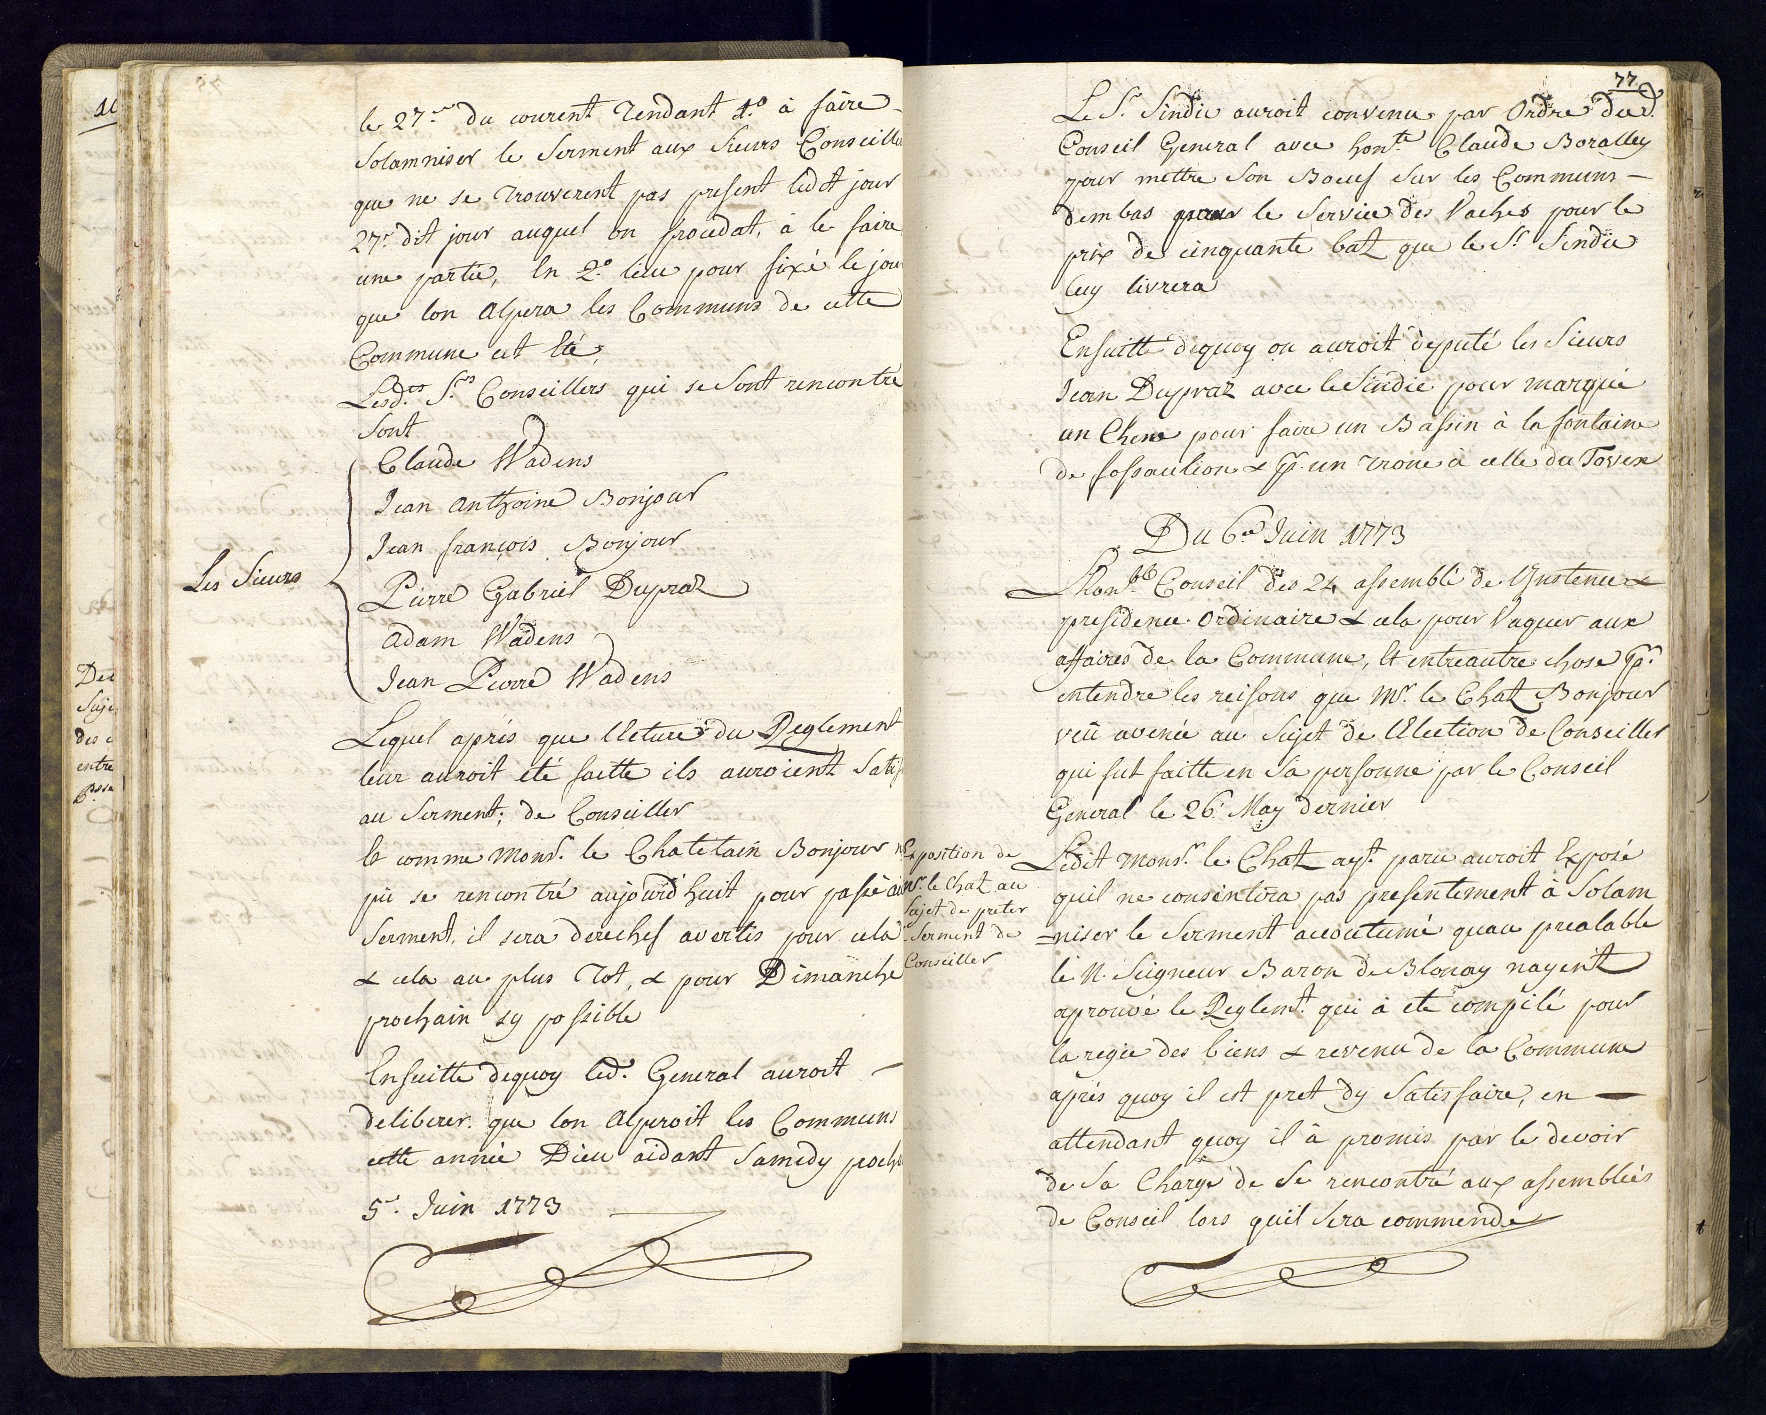 le 27.e du courent Tendant 1.o à faire
Solamniser le Serment aux Sieurs Conseille
que ne se Trouverent pas present ledit jour
27.e dit jour auquel on procedat, à le faire
une partie, En 2.o lieu pour fixé le jou
que lon Alpera les Communs de cette
Commune cet Eté,
Lesd.ts S.rs Conseillers qui se Sont rencontré
Sont
Les Sieurs
Claude Wadens
Jean Anthoine Bonjour
Jean françois Bonjour
Pierre Gabriel Dupraz
Adam Wadens
Jean Pierre Wadens
Lequel aprés que lecture du Reglement
leur auroit été faitte ils auroient Satis
au Serment; de Conseiller
Et comme Mons.r le Chatelain Bonjour n
pü se rencontré aujourd'huit pour passé au
Serment, il sera derechef avertis pour cela
& cela au plus Tot, & pour Dimanche
prochain sy possible
Ensuitte dequoy led.t General auroit —
deliberer que lon Alperoit les Communs
cette année Dieu aidant Samedy proch
5.e Juin 1773
77
Le S.r Sindic auroit convenu par Ordre dud.
Conseil General avec hon.te Claude Boralley
pour mettre Son Boeuf Sur les Communs —
dembas pour le Service des Vaches pour le
prix de cinquante batz que le S.r Sindic
luy livrera
Ensuitte dequoy on auroit députe les Sieurs
Jean Dupraz avec le Sindic pour marqué
un Chene pour faire un Bassin à la fontaine
de fossaulion & p.r un Trone a celle du Tovex
Du 6.e Juin 1773
Lhon.ble Conseil des 24 assemblé de l'Instence &
presidence Ordinaire & cela pour Vaquer aux
affaires de la Commune, Et entreautre chose p.r
entendre les reisons que M.r le Chat. Bonjour
veü avencé au Sujet de l'Election de Conseiller
qui fut faitte en Sa personne par le Conseil
General le 26. May dernier
Exposition de
M.r le Chat. au
Sujet de preter
Serment de
Conseiller
Ledit Mons.r le Chat. ay.t paru auroit Exposé
quil ne consentira pas presentement à Solam
=niser le Serment acoutumé quau prealable
le N. Seigneur Baron de Blonay nayent
aprouvé le Reglem.t qui à eté compilé pour
la regie des biens & revenu de la Commune
aprés quoy il est pret dy Satisfaire, en —
attendant quoy il à promis par le devoir
de Sa Charge de Se rencontré aux assemblées
de Conseil lors quil Sera commende